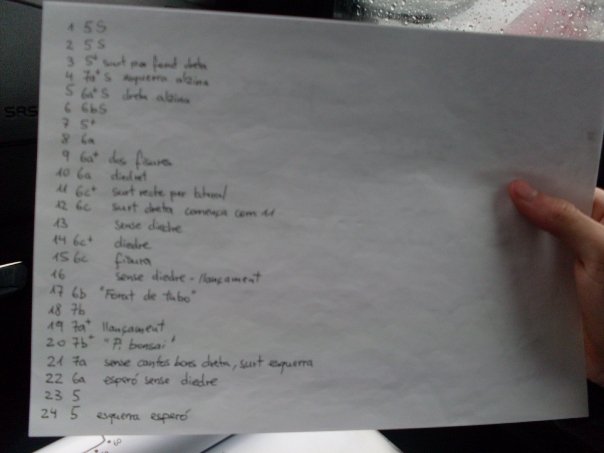 1 5S
2 5S
3 5+ surt per fand dreta
4 7a+ S esquerra alzina
5 6a+ S dreta alzina
6 6bS
7 5+
8 6a
9 6a+ dos fisures
10 6a diedret
11 6c+ surt recte per lateral
12 6c surt dreta comença com 11
13 sense diedre
14 6c+ diedre
15 6c fisura
16 sense diedre - llançament
17 6b "Forat de tubo"
18 7b
19 7a+ llançament
20 7b+ "Pi bonsai"
21 7a sense cantos bons dreta, surt esquerra
22 6a esperó sense diedre
23 5
24 5 esquerra esperó